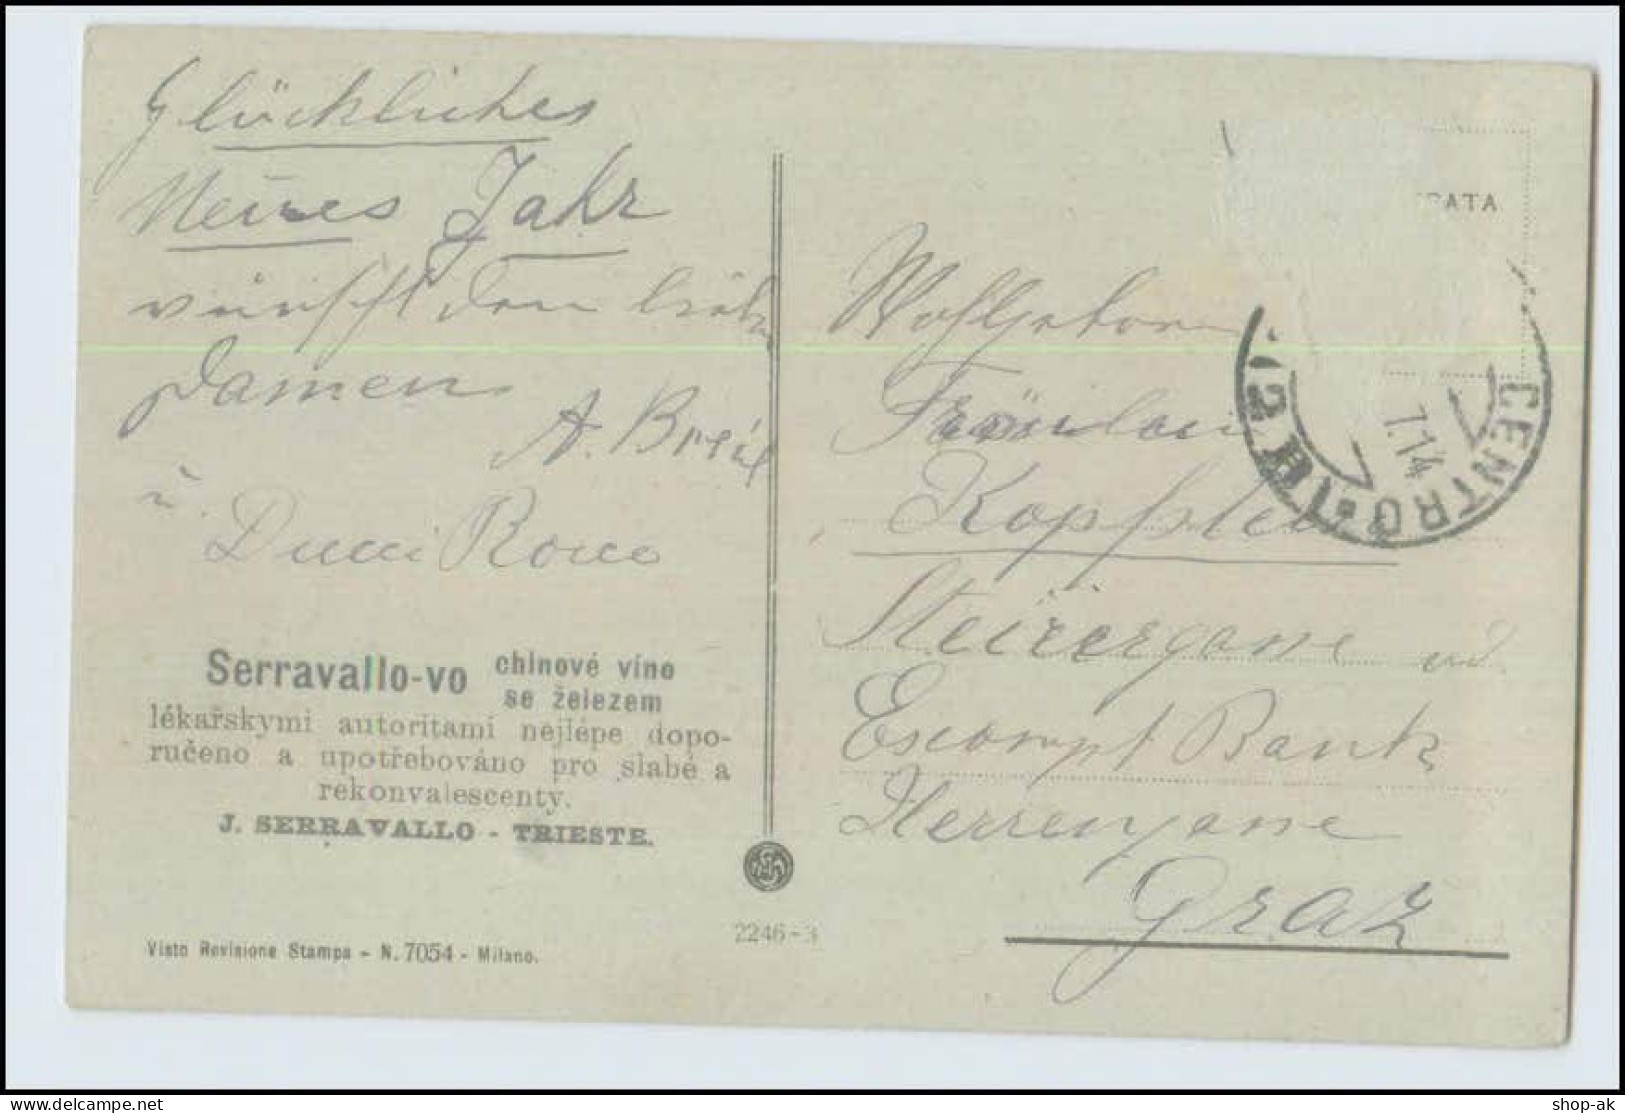 Glückliches
Neues Jahr
wünscht den lieben
Damen
A. Breil
u.
Serravallo-vo chinové víno
se železem
lékařskymi autoritami nejlépe dopo-
ručeno a upotřebováno pro slabé a
rekonvalescenty.
J. SERRAVALLO - TRIESTE.
Visto Revisione Stampa - N. 7054 - Milano.
2246-3
RATA
CENTRO
7.1.14
12 H
Wohlgeboren
Fräulein
Steirergasse
Escompt Bank
Herrengasse
Graz
shop-ak